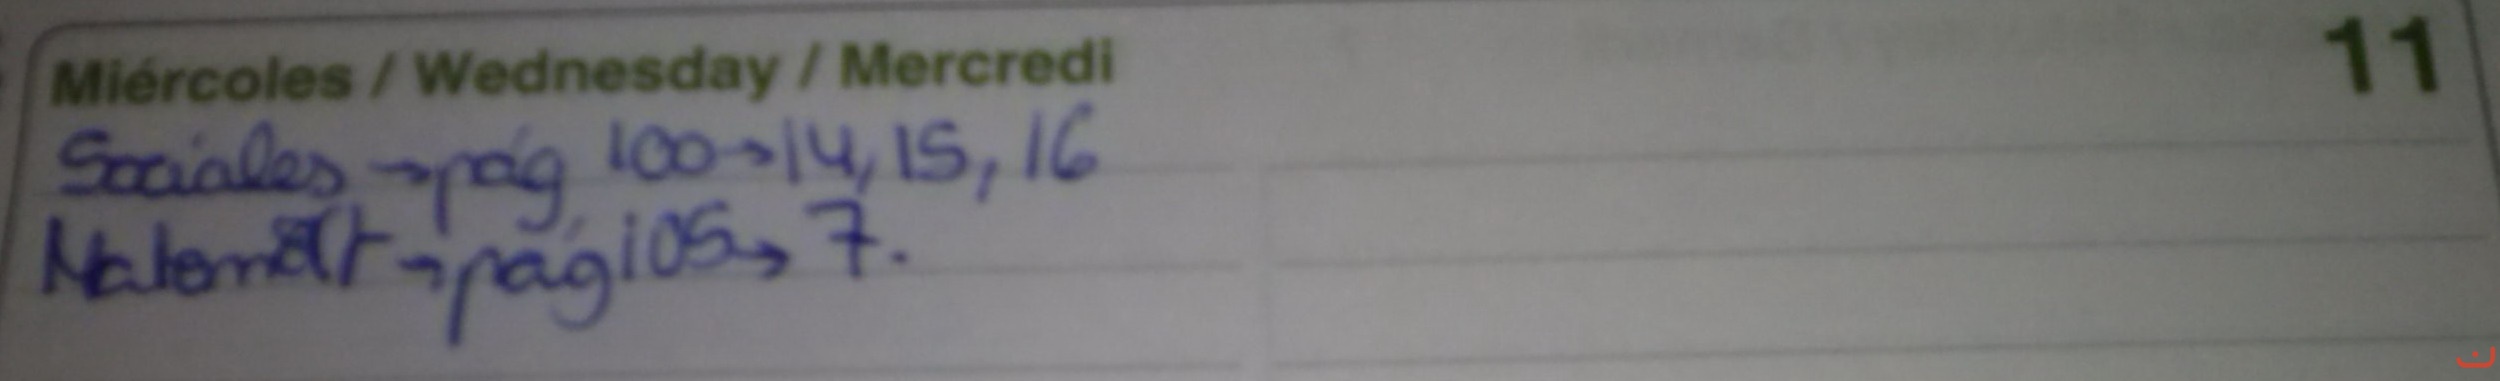 Miércoles / Wednesday / Mercredi 11
Sociales → pág 100 → 14, 15, 16
→ pág 105 → 7.